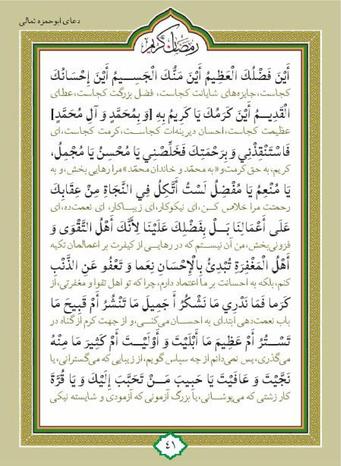 دعای ابوحمزه ثمالی
رمضان کریم
أَيْنَ فَضْلُكَ الْعَظِيمُ أَيْنَ مَنُّكَ الْجَسِيمُ أَيْنَ إِحْسَانُكَ
کجاست، جایزه‌های شایانت کجاست، فضل بزرگت کجاست، عطای
الْقَدِيمُ أَيْنَ كَرَمُكَ يَا كَرِيمُ بِهِ [وَ بِمُحَمَّدٍ وَ آلِ مُحَمَّدٍ]
عظیمت کجاست، احسان دیرینه‌ات کجاست، کرمت کجاست، ای
فَاسْتَنْقِذْنِي وَ بِرَحْمَتِكَ فَخَلِّصْنِي يَا مُحْسِنُ يَا مُجْمِلُ،
کریم، به حق کرمت و «به محمد و خاندان محمد» مرا رهایی بخش، و به
يَا مُنْعِمُ يَا مُفْضِلُ لَسْتُ أَتَّكِلُ فِي النَّجَاةِ مِنْ عِقَابِكَ
رحمتت مرا خلاص کن، ای نیکوکار، ای زیباکار، ای نعمت‌ده، ای
عَلَى أَعْمَالِنَا بَلْ بِفَضْلِكَ عَلَيْنَا لِأَنَّكَ أَهْلُ التَّقْوَى وَ
فزونی‌بخش، من آن نیستم که در رهایی از کیفرت بر اعمالمان تکیه
أَهْلُ الْمَغْفِرَةِ تُبْدِئُ بِالْإِحْسَانِ نِعَما وَ تَعْفُو عَنِ الذَّنْبِ
کنم، بلکه به احسانت بر ما اعتماد دارم، چرا که تو اهل تقوا و مغفرتی، از
كَرَما فَمَا نَدْرِي مَا نَشْكُرُ أَ جَمِيلَ مَا تَنْشُرُ أَمْ قَبِيحَ مَا
باب نعمت‌دهی ابتدای به احسان می‌کنی، و از جهت کرم از گناه در
تَسْتُرُ أَمْ عَظِيمَ مَا أَبْلَيْتَ وَ أَوْلَيْتَ أَمْ كَثِيرَ مَا مِنْهُ
می‌گذری، پس نمی‌دانم از چه سپاس گویم، از زیبایی که می‌گسترانی، یا
نَجَّيْتَ وَ عَافَيْتَ يَا حَبِيبَ مَنْ تَحَبَّبَ إِلَيْكَ وَ يَا قُرَّةَ
کار زشتی که می‌پوشانی، یا بزرگ آزمونی که آزمودی و شایسته نیکی
۴۱